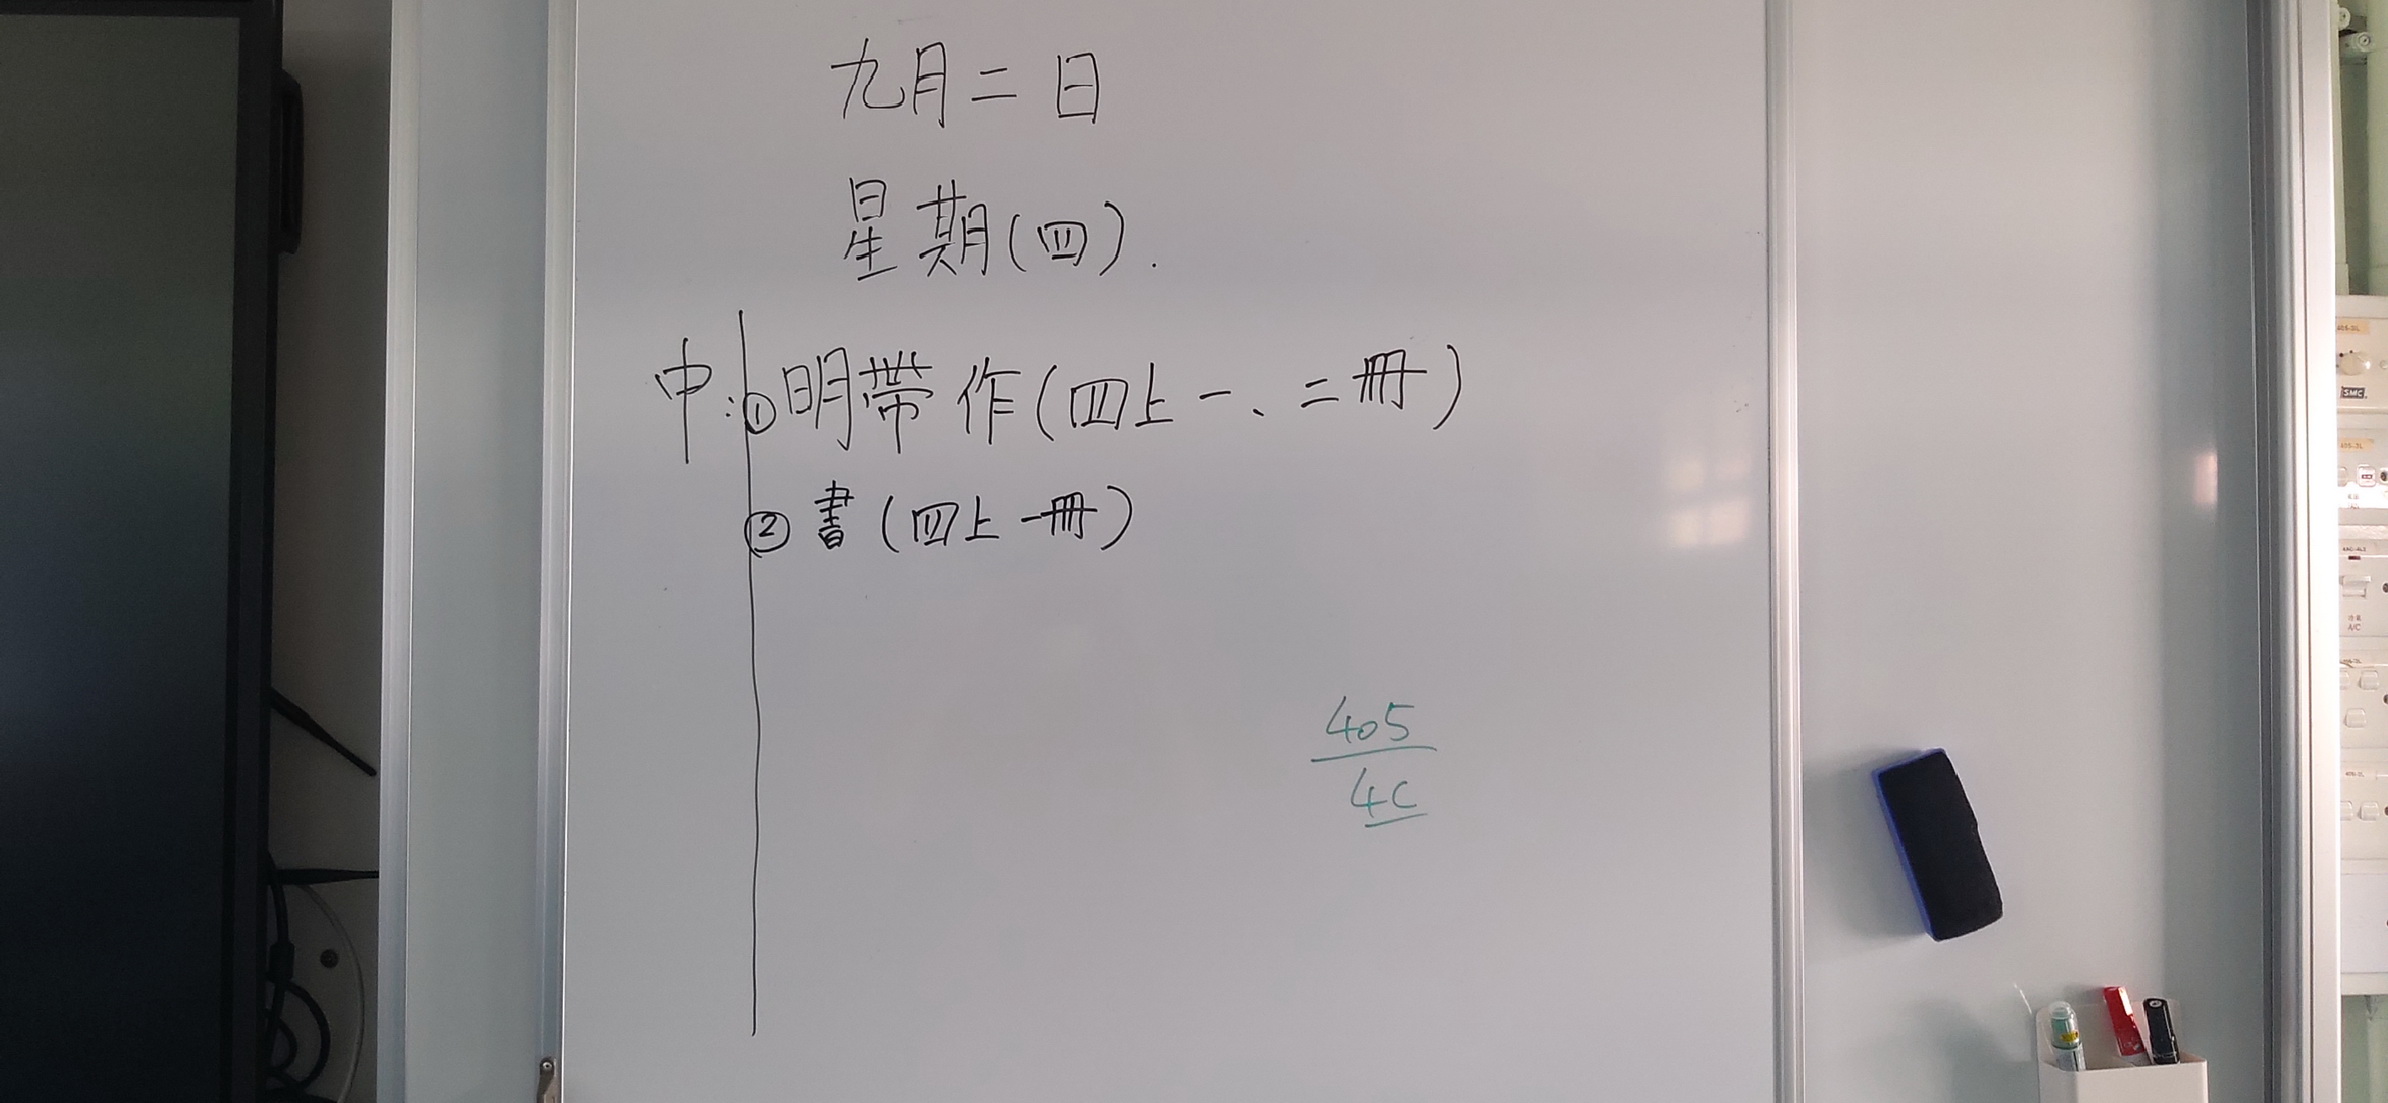 九月二日
星期(四).
中:①明帶作(四上一、二冊)
②書(四上一冊)
405
4C